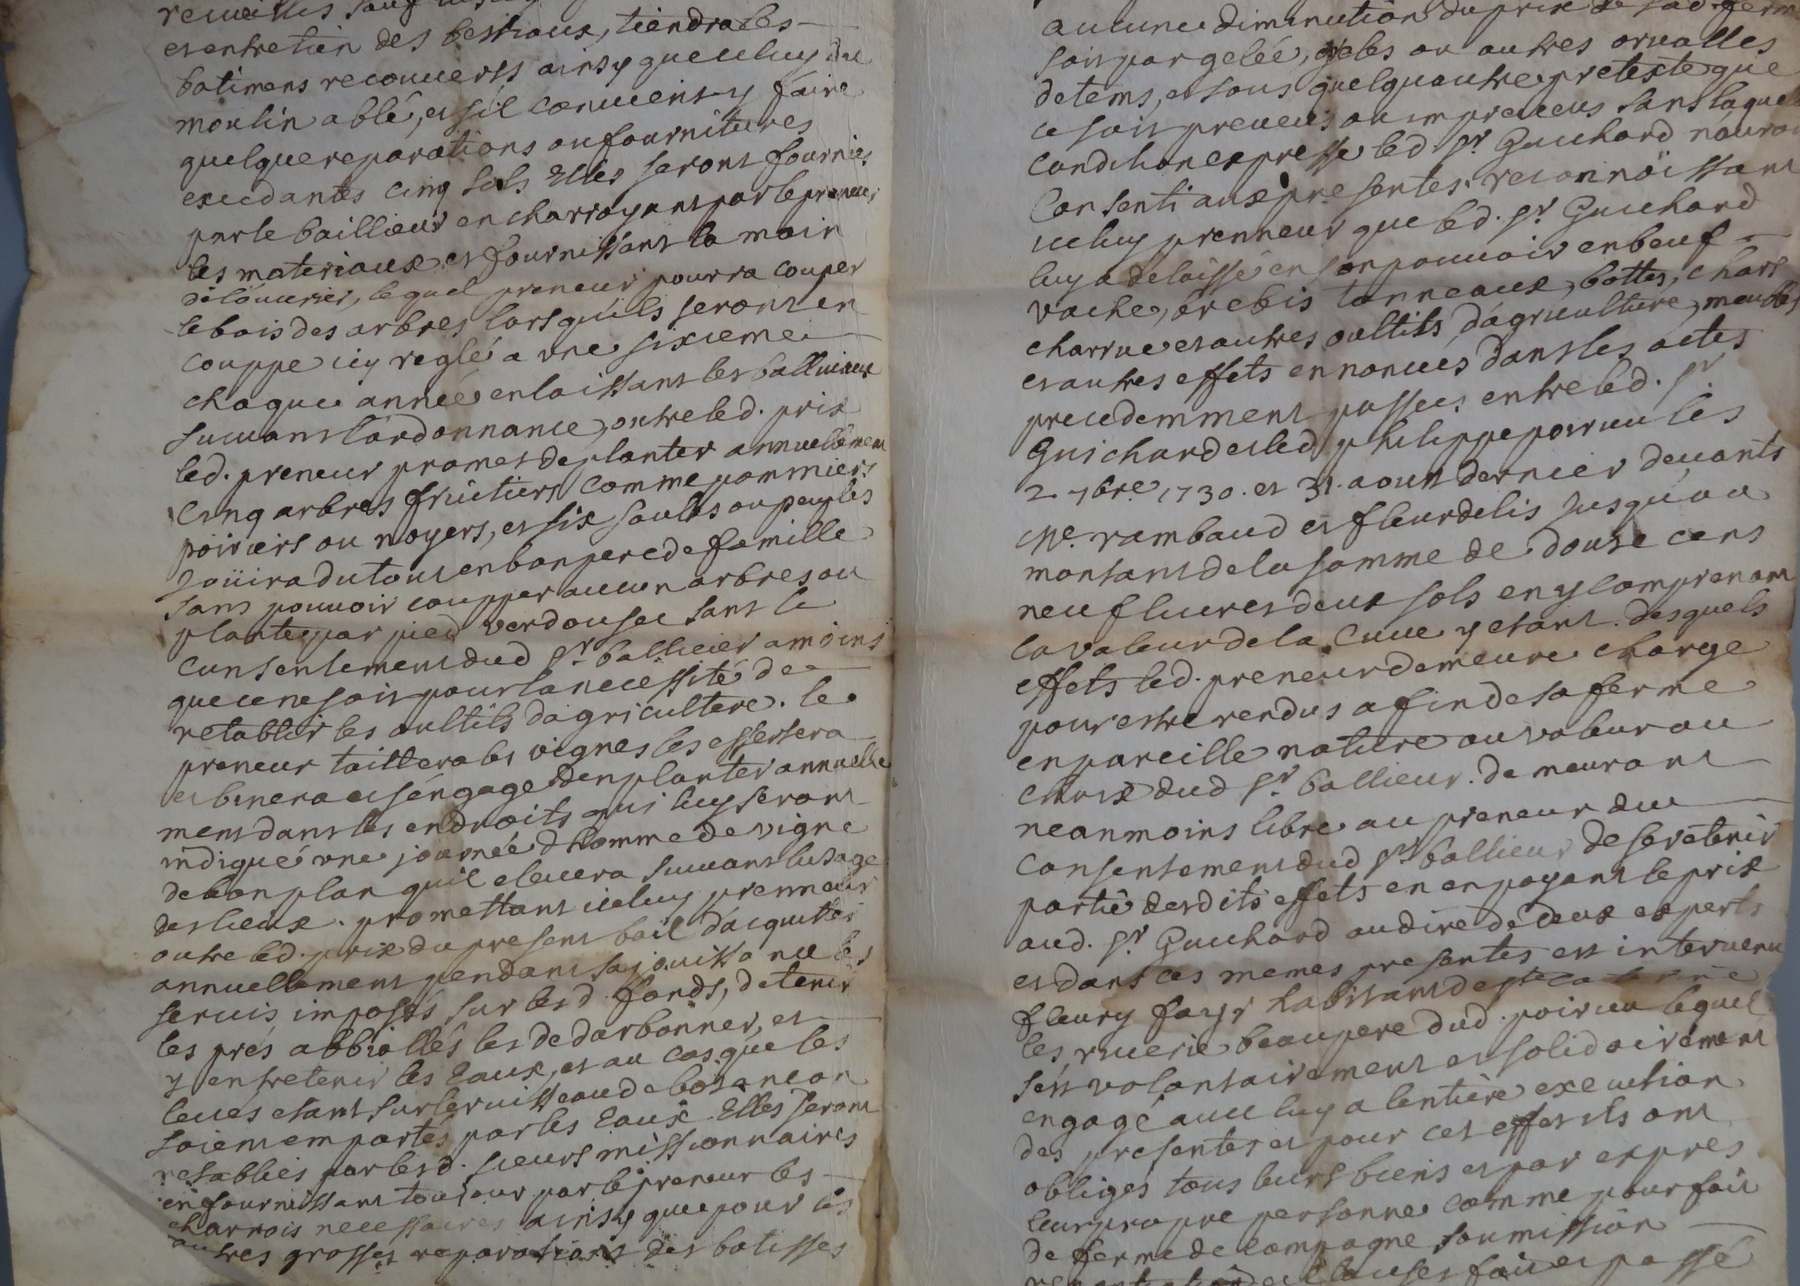 recueillis sauf
et entretien des bestiaux, tiendra les
batimens recouverts ainsy que celuy du
moulin a blé, et s'il convient y faire
quelque reparations ou fournitures
excedantes cinq sols Elles seront fournies
par le baillieur en charroyant par le preneur
les materiaux et fournissant la main
de l'ouvrier, lequel preneur pourra couper
le bois des arbres lorsqu'ils seront en
couppe icy reglé a une sixieme
chaque année en laissant les balliveaux
suivant l'ordonnance, outre led. prix
led. preneur promet de planter annuellement
cinq arbres fruitiers comme pommiers
poiriers ou noyers, et six saules ou peuples
Joüira du tout en bon pere de famille
sans pouvoir coupper aucun arbres ou
plantes par pied verd ou sec sans le
consentement dud sr. ballieur a moins
que ce ne soit pour la necessité de
retablir les oultils d'agriculture. le
preneur taillera les vignes les essertera
et binera et s'engage d'en planter annuelle
ment dans les endroits qui luy seront
indiqué une journée d'homme de vigne
de bon plan qu'il elevera suivant l'usage
des lieux. promettant iceluy prenneur
outre led. prix du present bail d'acquitter
annuellement pendant sa jouissance les
servis imposés sur lesd. fonds, de tenir
les prés abbialles les dedarbonner, et
y entretenir les Eaux, et au cas que les
leues etant sur le ruisseau de
soient emportés par les Eaux Elles seront
restablies par lesd. sieurs missionnaires
en fournissant toujour par le preneur les
charrois necessaires ainsy que pour les
autres grosses reparations des batisses
aucune diminution du prix de sad. ferme
soit par gelée, greles ou autres orvalles
de tems, et sous quelqu'autre preteste que
ce soit preveus ou impreveus sans laquelle
condition expresse led sr. Guichard n'auroit
Consenti aux presentes. reconnoissant
iceluy prenneur que led. sr. Guichard
luy a delaissé en son pouvoir en beuf
vache, brebis tonneaux, bottes, chars
charrue et autres oultils d'agriculture, meubles
et autres effets ennoncés dans les actes
precedemment passes entre led. sr.
Guichard et led philippe poirieu les
2 7bre. 1730. et 31. aout dernier devants
Me. rambaud et fleurdelis jusqu'au
montant de la somme de douze cens
neuf livres deux sols en y comprenant
la valeur de la Cuve y etant. desquels
effets led. preneur demeure charge
pour estre rendus a fin de sa ferme
en pareille nature ou valeur au
choix dud sr. ballieur. demeurant
neanmoins libre au preneur du
Consentement dud sr. ballieur de se retenir
partie desdits effets en en payant le prix
aud. sr. Guichard au dire de deux experts
et dans ces memes presentes est intervenu
fleury fays habitant de ste catherine
les riverie beaupere dud. poirieu lequel
s'est volontairement et solidairement
engagé avec luy a l'entiere execution
des presentes et pour cet effet ils ont
obliges tous leurs biens et par expres
leur propre personne comme pour fait
de ferme de campagne soumission
clauses fait et passé